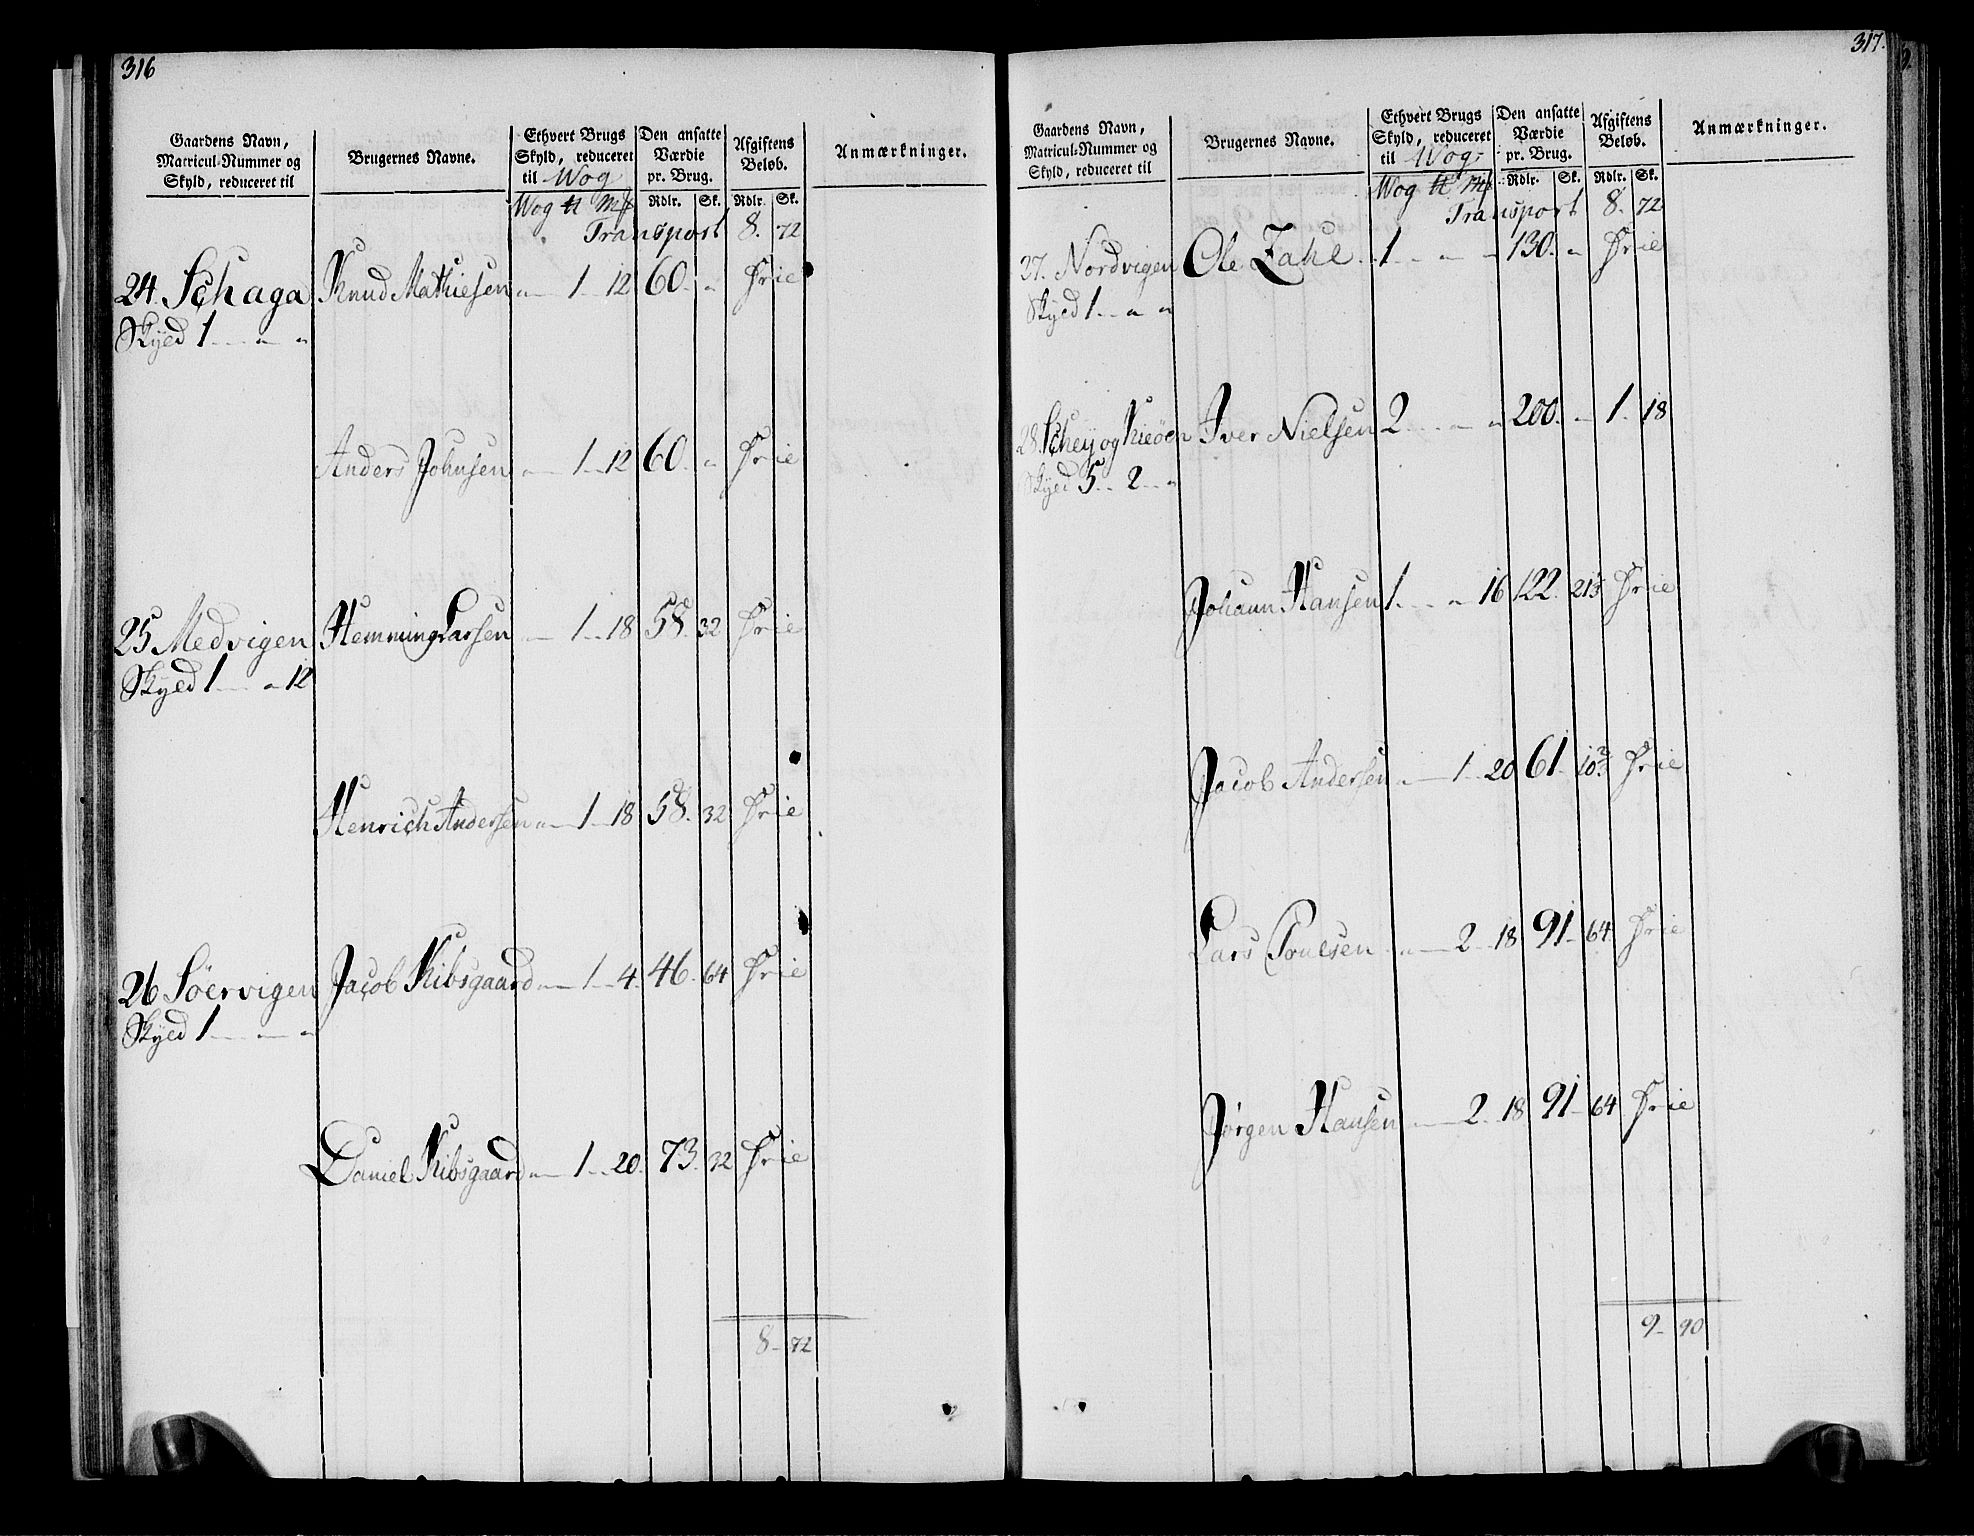 316
Gaardens Navn, Matricul-Nummer og Skyld, reduceret til
Brugernes Navne.
Ethvert Brugs Skyld, reduceret til Wog
Den ansatte Værdie pr. Brug.
Afgiftens Beløb.
Anmærkninger.
Wog ℔ Mk Rdlr. Sk. Rdlr. Sk.
Transport 8. 72
24. Schaga Knud Mathiesen " 1 12 60. " Frie
Skyld 1 " "
Anders Johnsen " 1 12 60. " Frie
25 Medvigen Hemming Larsen " 1 18 58. 32 Frie
Skyld 1 " 12
Henrich Andersen " 1 18 58. 32 Frie
26 Söervigen Jacob Kibsgaard " 1 4. 46. 64 Frie
Skyld 1 " "
Daniel Kibsgaard " 1 20. 73. 32 Frie
8 72
317.
Gaardens Navn, Matricul-Nummer og Skyld, reduceret til
Brugernes Navne.
Ethvert Brugs Skyld, reduceret til Wog
Den ansatte Værdie pr. Brug.
Afgiftens Beløb.
Anmærkninger.
Wog ℔ Mk Rdlr. Sk. Rdlr. Sk.
Transport 8. 72
27. Nordvigen Ole Zahl 1 " " 130. " Frie
Skyld 1 " "
28. Schey og Kieöen Iver Nielsen 2 " " 200. " 1 18
Skyld 5 2 "
Johann Hansen 1 " 16 122. 21⅓ Frie
Jacob Andersen " 1 20 61. 10⅔ Frie
Lars Poulsen " 2 18 91 64 Frie
Jörgen Hansen " 2 18 91 64 Frie
9 90